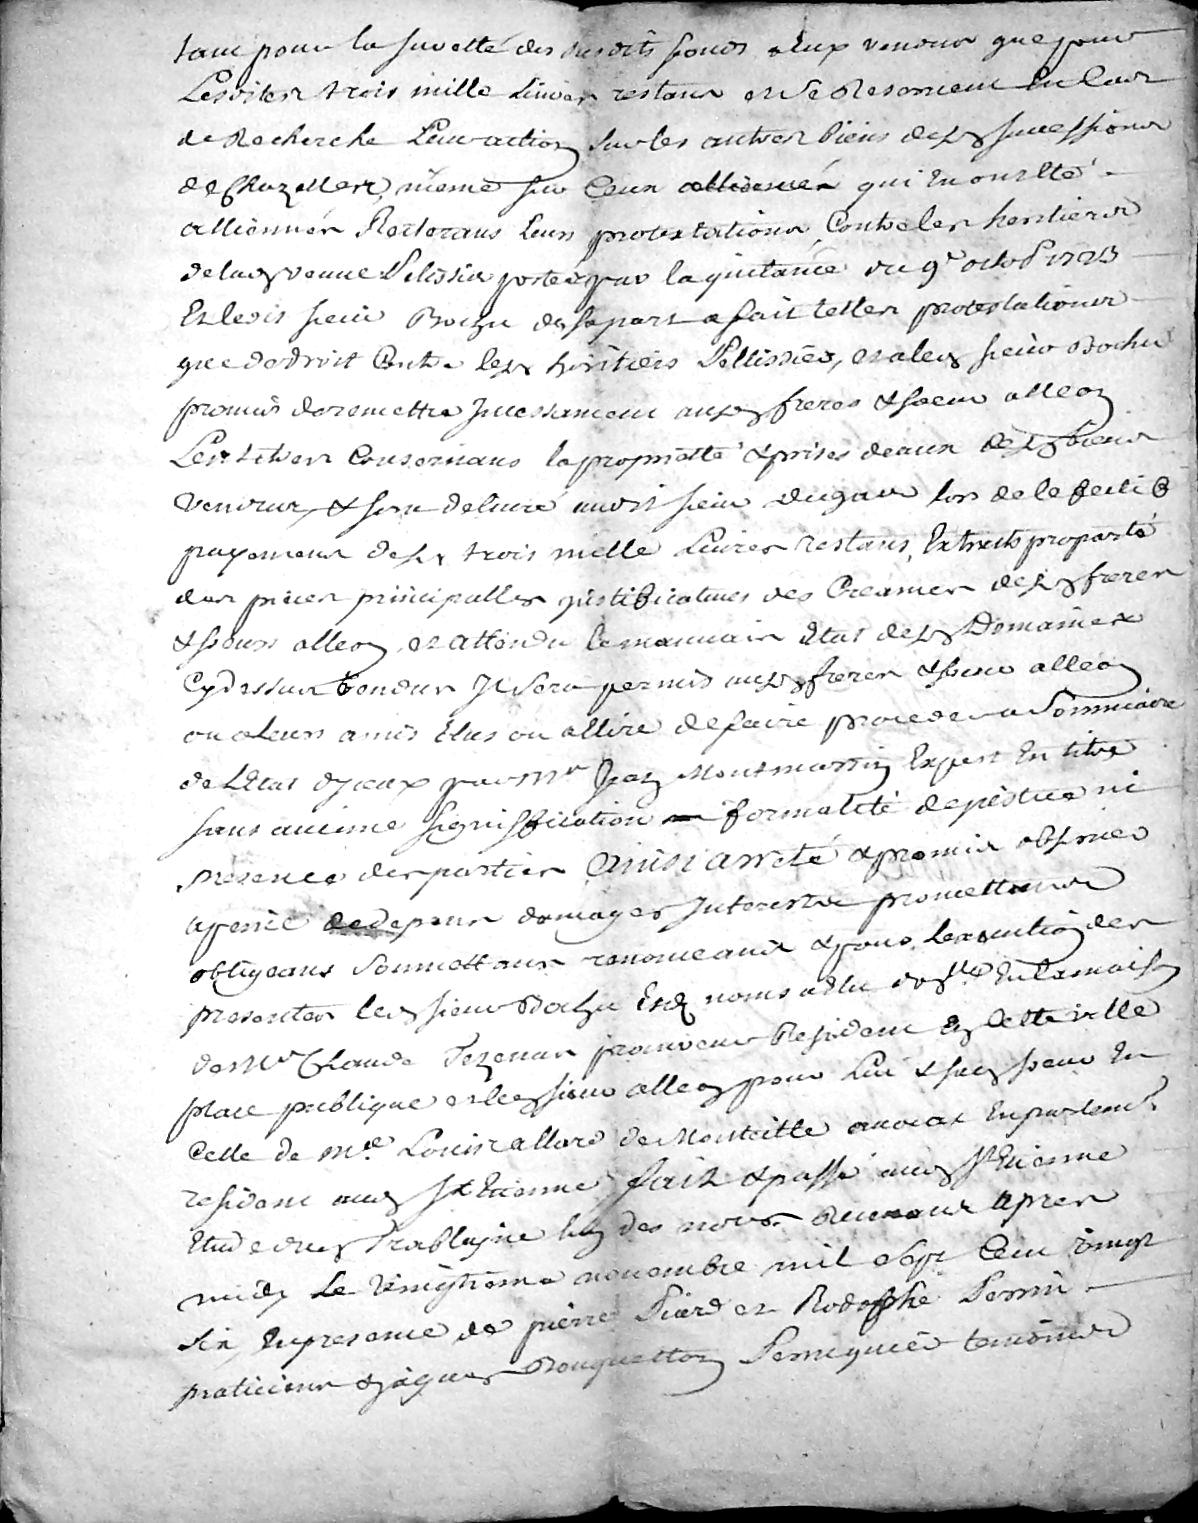 tant pour la suretté des susdits fonds a eux vendus que pour
Lesdites trois mille Livres restans et se Reservent En Cas
de Recherche Leur action sur les autres biens desd successions
de Chazelles, même sur Ceux qui En ont Eté
alliennés Reiterans Leurs protestations Contre les heritiers
de lad veuve Pelissier portées par la quitance du 9e octob 1723
Et ledit sieur de sa part a fait telles protestations
que de droit Contre lesd héritiers Pellissier, et aled sieur
promis de remettre Incessament auxd freres & soeur alleon
Les titres Conservans la proprietté & prises deaux desd biens
vendus, & sera delivré audit sieur lors de le fectif
payement desd trois mille Livres restans, Extraits proparté
des pieces principalles justificatives des Creances desd freres
& soeurs alleon, et attendu le mauvais Etat desd Domaines
Cydessus vendus Il sera permis auxd freres & soeur alleon
ou a leurs amis Elus ou a Elire de faire proceder a Sommaire
de L'Etat dyceux par Mr Jean Montmartin Expert En titre
sans aucune signiffication formalité de justice ni
presence des parties Ainsi arreté & promis observer
a peine de depens domages Interests promettans
obligeans Soumettans renonceans & pour Lexecution des
presentes led sieur Esd noms a Elu En la maison
de Mr Claude Tezenas procureur Resident En cette ville
place publique et led sieur alleon pour Lui & sad soeur En
Celle de Me Louis allard de Monteille avocat En parlemt
resident aud St Etienne fait & passé aud St Etienne
Etude dud Trablaine Lun des nores Recevant apres
midy Le vingtieme novembre mil sept Cent vingt
six, En presence de pierre Piard et Rodolphe Perrin
praticiens & jaques Bouquetton Perruquier temoins